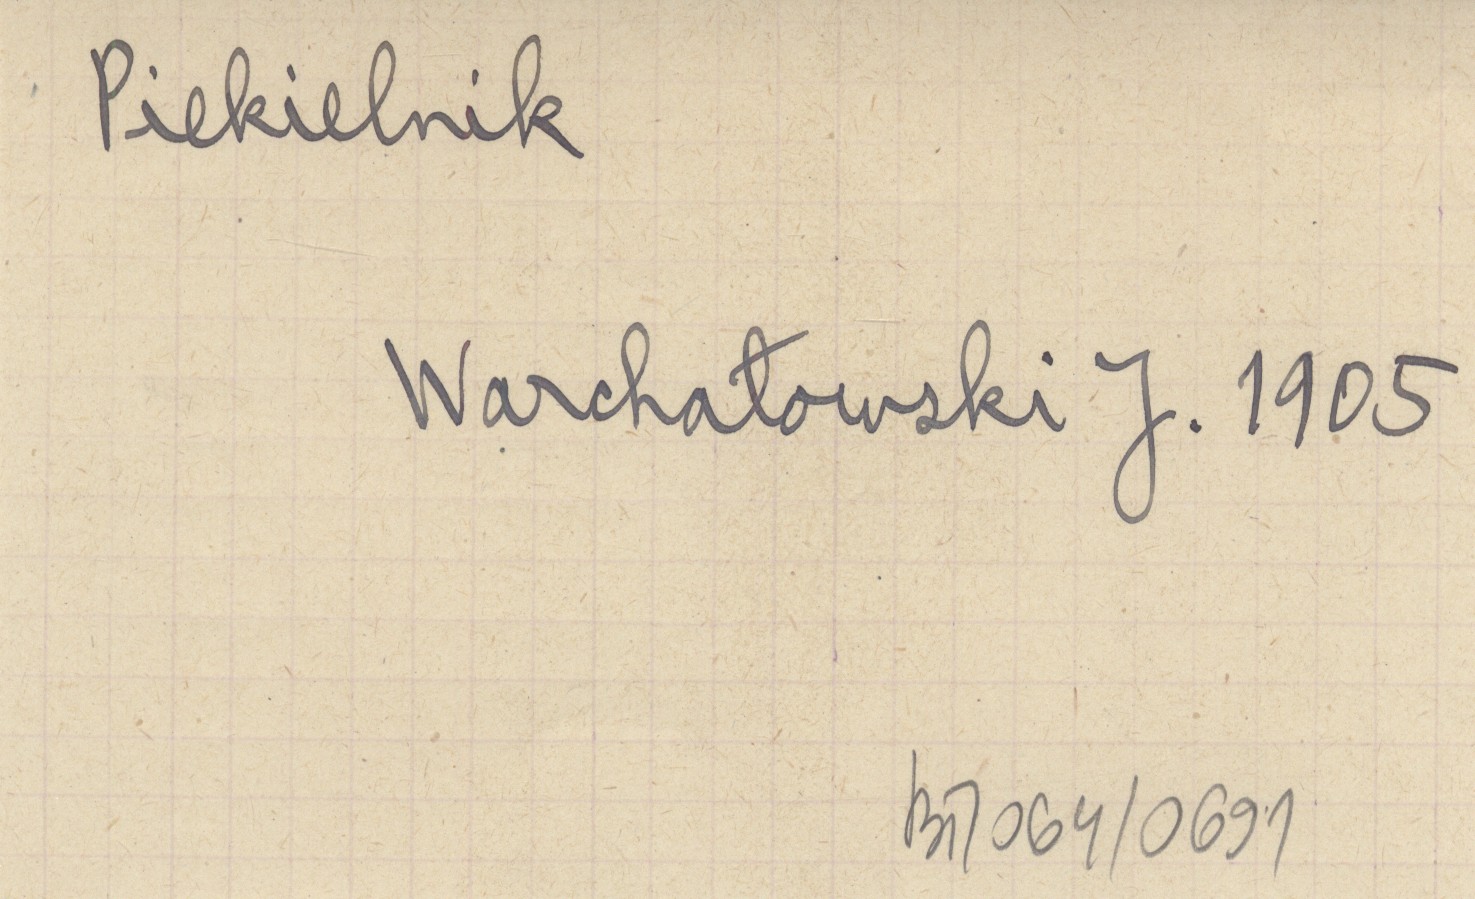 Piekielnik
Warchałowski J. 1905
064/0691